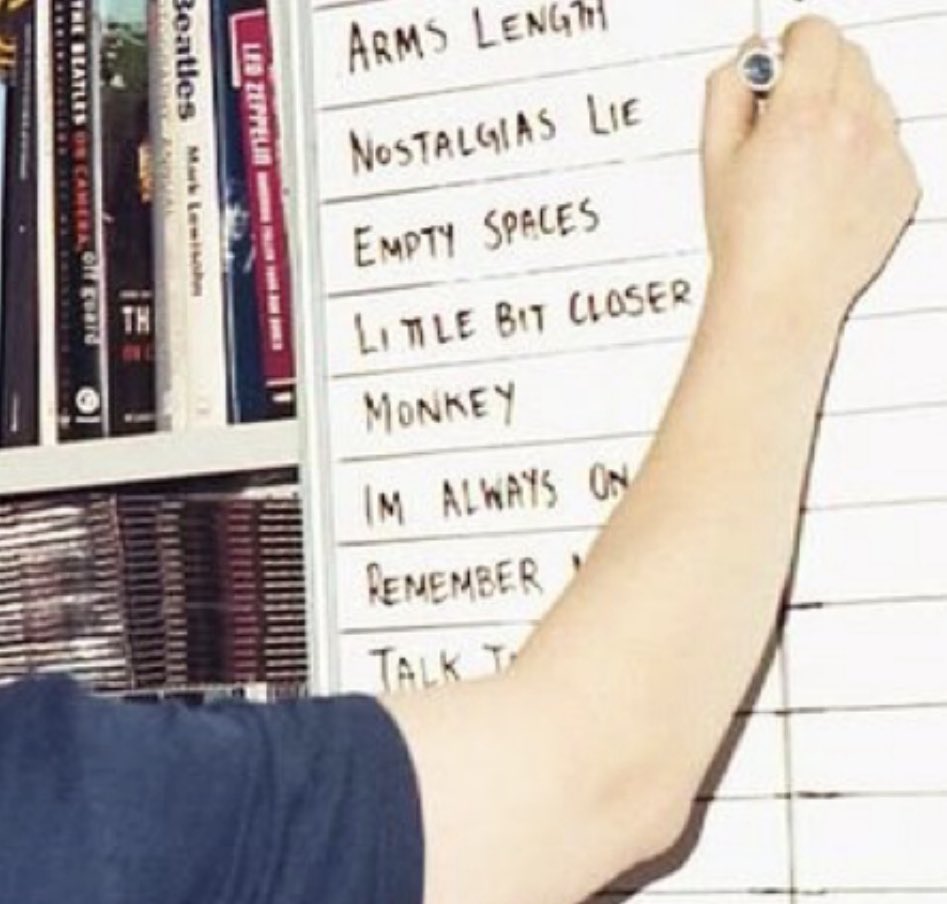 THE BEATLES ON CAMERA, Off Guard
TH
Beatles
Mark Lewisohn
LED ZEPPELIN
ARMS LENGTH
NOSTALGIAS LIE
EMPTY SPACES
LITTLE BIT CLOSER
MONKEY
IM ALWAYS ON
REMEMBER
TALK